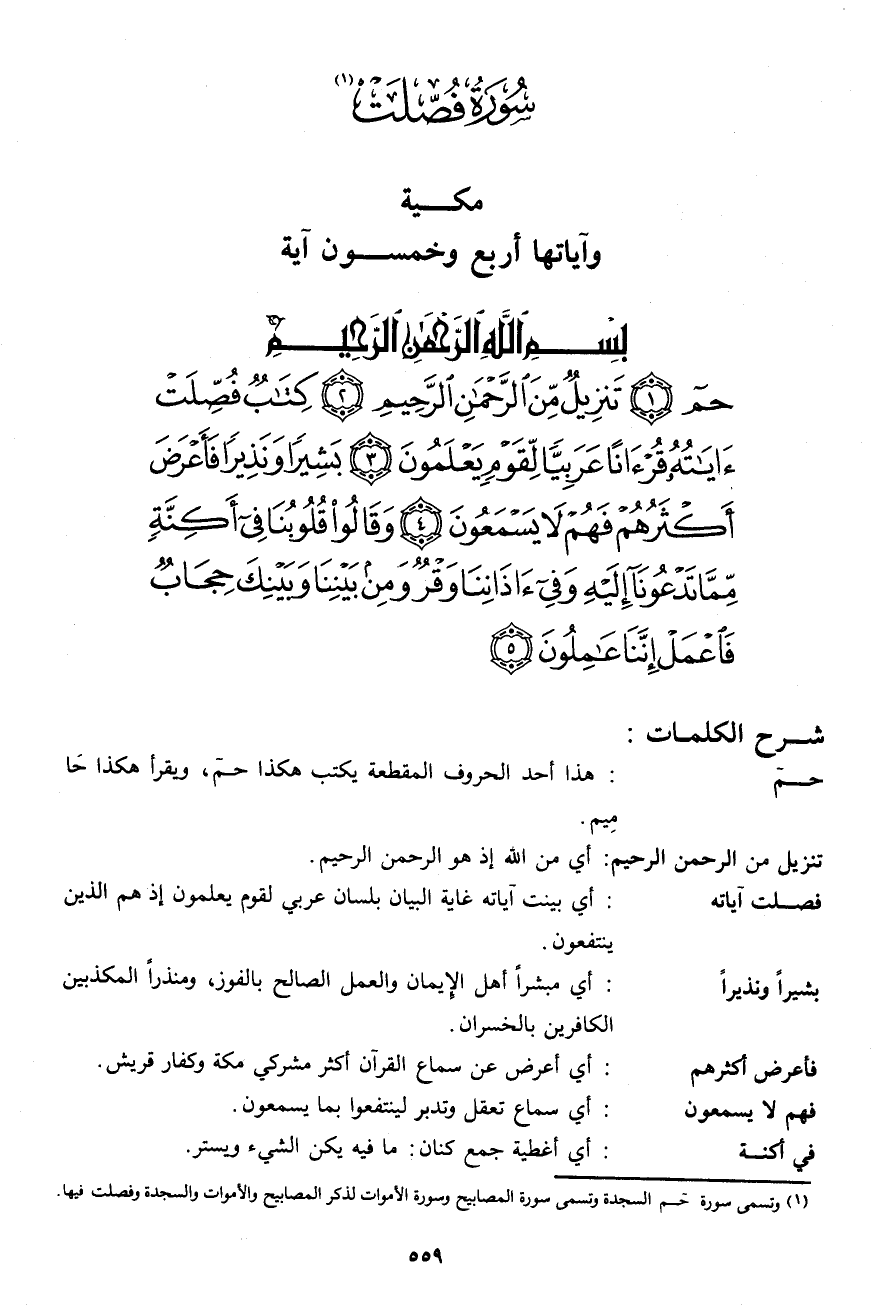 سُورَةُ فُصِّلَتْ (١)
مكـــية
وآياتها أربع وخمســـون آية
بِسْـــمِ ٱللَّهِ ٱلرَّحْمَٰنِ ٱلرَّحِيمِ
حمٓ ۝١ تَنزِيلٌ مِّنَ ٱلرَّحْمَٰنِ ٱلرَّحِيمِ ۝٢ كِتَٰبٌ فُصِّلَتْ
ءَايَٰتُهُۥ قُرْءَانًا عَرَبِيًّا لِّقَوْمٍ يَعْلَمُونَ ۝٣ بَشِيرًا وَنَذِيرًا فَأَعْرَضَ
أَكْثَرُهُمْ فَهُمْ لَا يَسْمَعُونَ ۝٤ وَقَالُوا۟ قُلُوبُنَا فِىٓ أَكِنَّةٍ
مِّمَّا تَدْعُونَآ إِلَيْهِ وَفِىٓ ءَاذَانِنَا وَقْرٌ وَمِنۢ بَيْنِنَا وَبَيْنِكَ حِجَابٌ
فَٱعْمَلْ إِنَّنَا عَٰمِلُونَ ۝٥
شـــرح الكلمـات :
حـــمٓ : هذا أحد الحروف المقطعة يكتب هكذا حـمٓ، ويقرأ هكذا حَا
مِيم.
تنزيل من الرحمن الرحيم: أي من الله إذ هو الرحمن الرحيم.
فصـــلت آياته : أي بينت آياته غاية البيان بلسان عربي لقوم يعلمون إذ هم الذين
ينتفعون.
بشيراً ونذيراً : أي مبشراً أهل الإيمان والعمل الصالح بالفوز، ومنذراً المكذبين
الكافرين بالخسران.
فأعرض أكثرهم : أي أعرض عن سماع القرآن أكثر مشركي مكة وكفار قريش.
فهم لا يسمعون : أي سماع تعقل وتدبر لينتفعوا بما يسمعون.
في أكنـــة : أي أغطية جمع كنان: ما فيه يكن الشيء ويستر.
(١) وتسمى سورة حَـم السجدة وتسمى سورة المصابيح وسورة الأموات لذكر المصابيح والأموات والسجدة وفصلت فيها.
٥٥٩